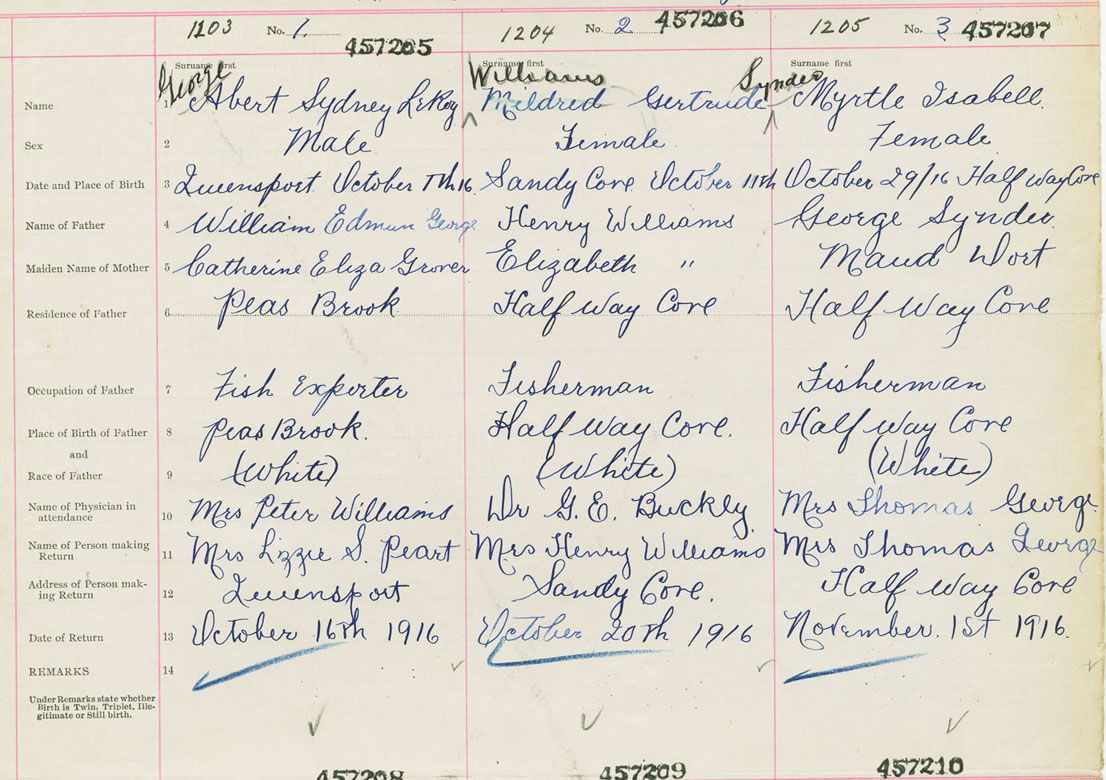 1203 No. 1. 457205 1204 No. 2 457206 1205 No. 3 457207
Surname first Surname first Surname first
George Williams Synder
Name 1 Abert Sydney LeRoy Mildred Gertrude Myrtle Isabell.
Sex 2 Male Female Female
Date and Place of Birth 3 Queensport October 7th 16 Sandy Cove October 11th October 29/16 Half Way Cove
Name of Father 4 William Edmun George Henry Williams George Synder
Maiden Name of Mother 5 Catherine Eliza Grover Elizabeth " Maud Wort
Residence of Father 6 Peas Brook Half Way Cove Half Way Cove
Occupation of Father 7 Fish Exporter Fisherman Fisherman
Place of Birth of Father 8 Peas Brook. Half Way Cove. Half Way Cove
and
Race of Father 9 (White) (White) (White)
Name of Physician in attendance 10 Mrs Peter Williams Dr G. E. Buckly Mrs Thomas George
Name of Person making Return 11 Mrs Lizzie S. Peart Mrs Henry Williams Mrs Thomas George
Address of Person mak-
ing Return 12 Queensport Sandy Cove. Half Way Cove
Date of Return 13 October 16th 1916 October 20th 1916 November. 1st 1916.
REMARKS 14
Under Remarks state whether
Birth is Twin, Triplet, Ille-
gitimate or Still birth.
457208 457209 457210